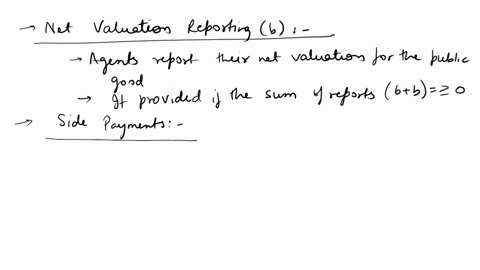 → Net Valuation Reporting (b) :-
→ Agents report their net valuation for the public
good
→ It provided if the sum of reports (b+b) = ≥ 0.
→ Side Payments:-